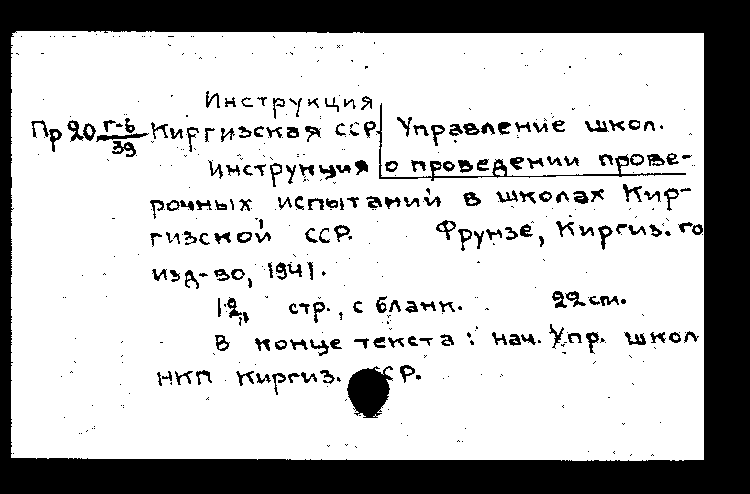 Инструкция
Пр 20 г-6/39 Киргизская ССР. Управление школ.
Инструкция о проведении прове-
рочных испытаний в школах Кир-
гизской ССР. Фрунзе, Киргиз. го
изд-во, 1941.
12 стр., с бланк. 22 см.
В конце текста: нач. Упр. школ
НКП Киргиз. ССР.